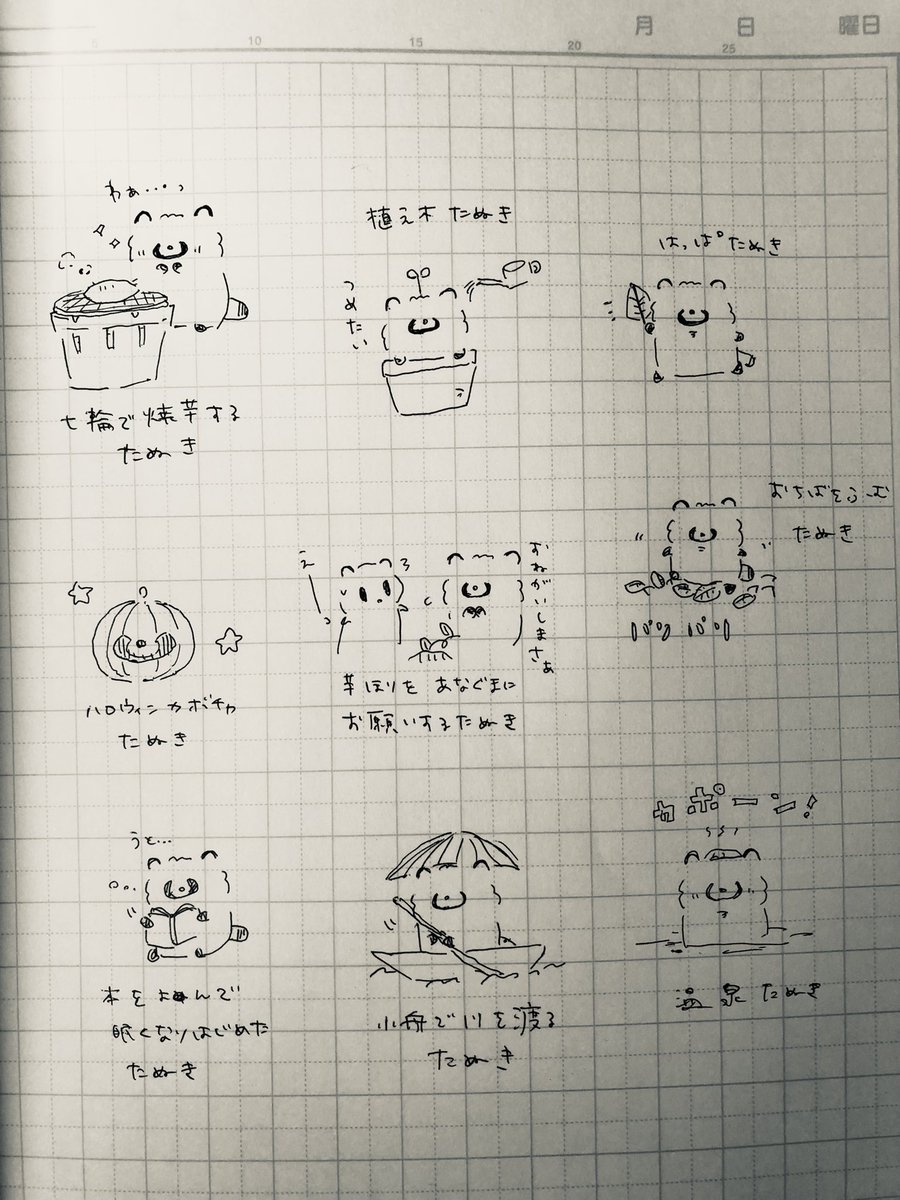 月 日 曜日
5 10 15 20 25
わぁ…っ
七輪で焼芋する
たぬき
植え木たぬき
つめたい
はっぱたぬき
ハロウィンカボチャ
たぬき
おねがいしまさぁ
芋ほりをあなぐまに
お願いするたぬき
おちばをふーむ
たぬき
うと…
本をよんで
眠くなりはじめた
たぬき
小舟で川を渡る
たぬき
カポーン!
温泉たぬき